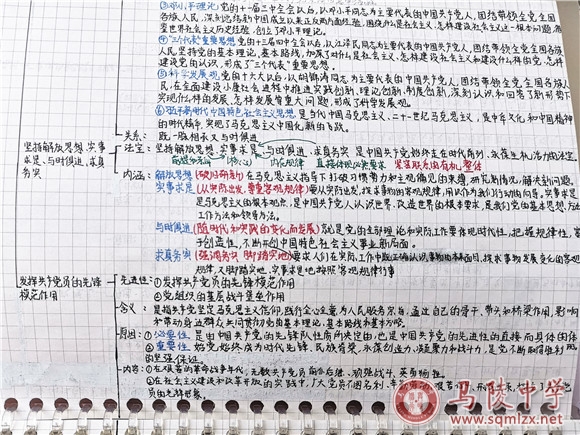 ③邓小平理论 党的十一届三中全会以后,以邓小平同志为主要代表的中国共产党人,团结带领全党全国
各族人民,深刻总结新中国成立以来正反两方面经验,围绕什么是社会主义、怎样建设社会主义这一根本问题,
世界社会主义历史经验,创立了邓小平理论。
④"三个代表"重要思想 党的十三届四中全会以后,以江泽民同志为主要代表的中国共产党人,团结带领全党全国各族
人民,坚持党的基本理论、基本路线,加深了对什么是社会主义、怎样建设社会主义和建设什么样的党、怎样
建设党的认识,形成了"三个代表"重要思想。
⑤科学发展观 党的十六大以后,以胡锦涛同志为主要代表的中国共产党人,团结带领全党全国各族人
民,在全面建设小康社会进程中推进实践创新、理论创新、制度创新,深刻认识和回答了新形势下
实现什么样的发展、怎样发展等重大问题,形成了科学发展观。
⑥习近平新时代中国特色社会主义思想 是当代中国马克思主义、二十一世纪马克思主义,是中华文化和中国精神
的时代精华,实现了马克思主义中国化新的飞跃。
关系: 既一脉相承又与时俱进
坚持解放思想、实事
求是、与时俱进、求真
务实
法宝: 坚持解放思想、实事求是、与时俱进、求真务实 是中国共产党始终走在时代前列、永葆生机活力的法宝。
前提和先导 核心 内在规律 直接体现and要求 紧密联系的有机整体
内涵: 解放思想 (破旧而新) 在马克思主义指导下打破习惯势力和主观偏见的束缚,研究新情况,解决新问题。
实事求是 (从实际出发,尊重客观规律) 要从实际出发,找出事物的客观规律,用以作为我们行动的向导。实事求是
是马克思主义的根本观点,是中国共产党人认识世界、改造世界的根本要求,是我们党的基本思想方法、
工作方法和领导方法。
与时俱进 (随时代和实践的变化而发展) 就是党的全部理论和实际工作要体现时代性,把握规律性,富
于创造性,不断开创中国特色社会主义事业新局面。
求真务实 (强调务实,脚踏实地) 要求人们在实际工作中正确认识事物的本来面目,找求事物发展变化的客观
规律,又脚踏实地、实事求是地按照客观规律行事
发挥共产党员的先锋
模范作用
先进性: ①发挥共产党员的先锋模范作用
②党组织的基层战斗堡垒作用
含义: 是指共产党坚定马克思主义信仰,践行全心全意为人民服务宗旨,通过自己的骨干、带头和桥梁作用,影响
和带动身边群众共同贯彻党的基本理论、基本路线和基本方略。
原因: ①必要性 是由中国共产党的先锋队性质所决定的,也是中国共产党的先进性的直接而具体的体
②重要性 始党始终成为时代先锋、民族脊梁,永葆创造力、凝聚力和战斗力,是党不断取得胜利
的坚强保证。
内容: ①在艰苦的革命战争年代,无数共产党员前仆后继、顽强战斗、英勇牺牲
②在社会主义建设和改革开放的实践中,广大党员不图名利、
员的先锋形象。
马陵中学
www.sqmlzx.net